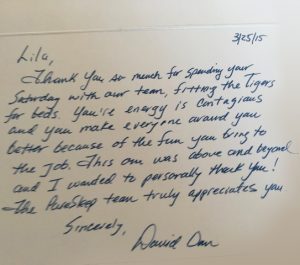 3/25/15
Lila,
Thank you so much for spending your
Saturday with our team, fitting the Tigers
for beds. You're energy is contagious
and you make everyone around you
better because of the fun you bring to
the job. This one was above and beyond
and I wanted to personally thank you!
The PureSleep team truly appreciates you
Sincerely,
David